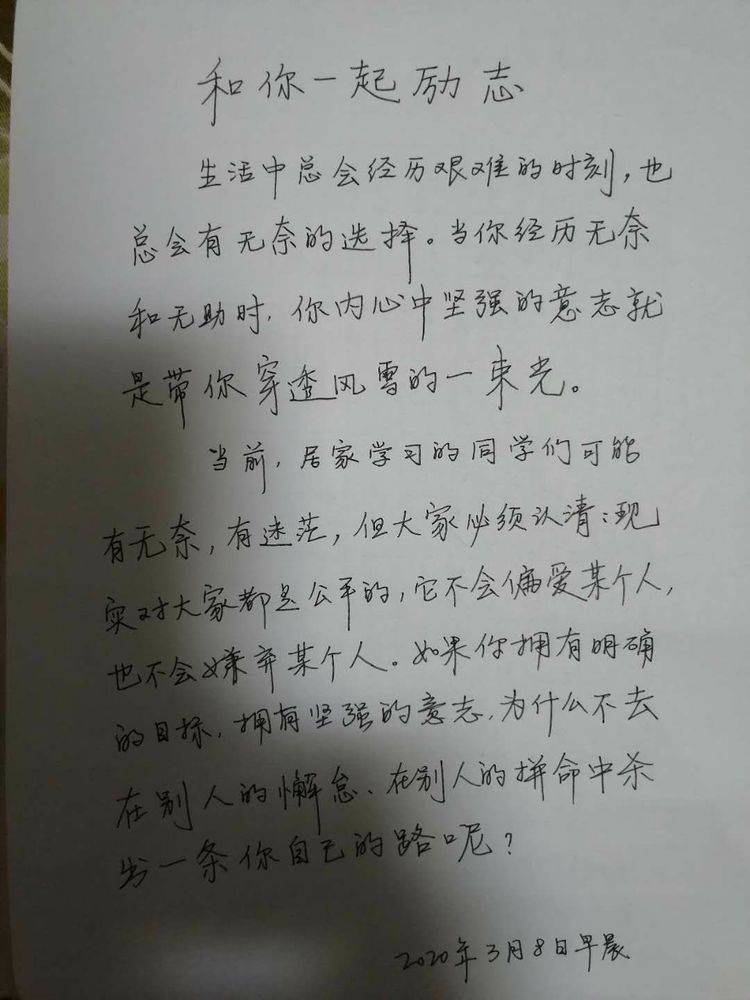 和你一起励志
生活中总会经历艰难的时刻，也
总会有无奈的选择。当你经历无奈
和无助时，你内心中坚强的意志就
是带你穿透风雪的一束光。
当前，居家学习的同学们可能
有无奈，有迷茫，但大家必须认清：现
实对大家都是公平的，它不会偏爱某个人，
也不会嫌弃某个人。如果你拥有明确
的目标，拥有坚强的意志，为什么不去
在别人的懈怠、在别人的拼命中杀
出一条你自己的路呢？
2020年3月8日早晨